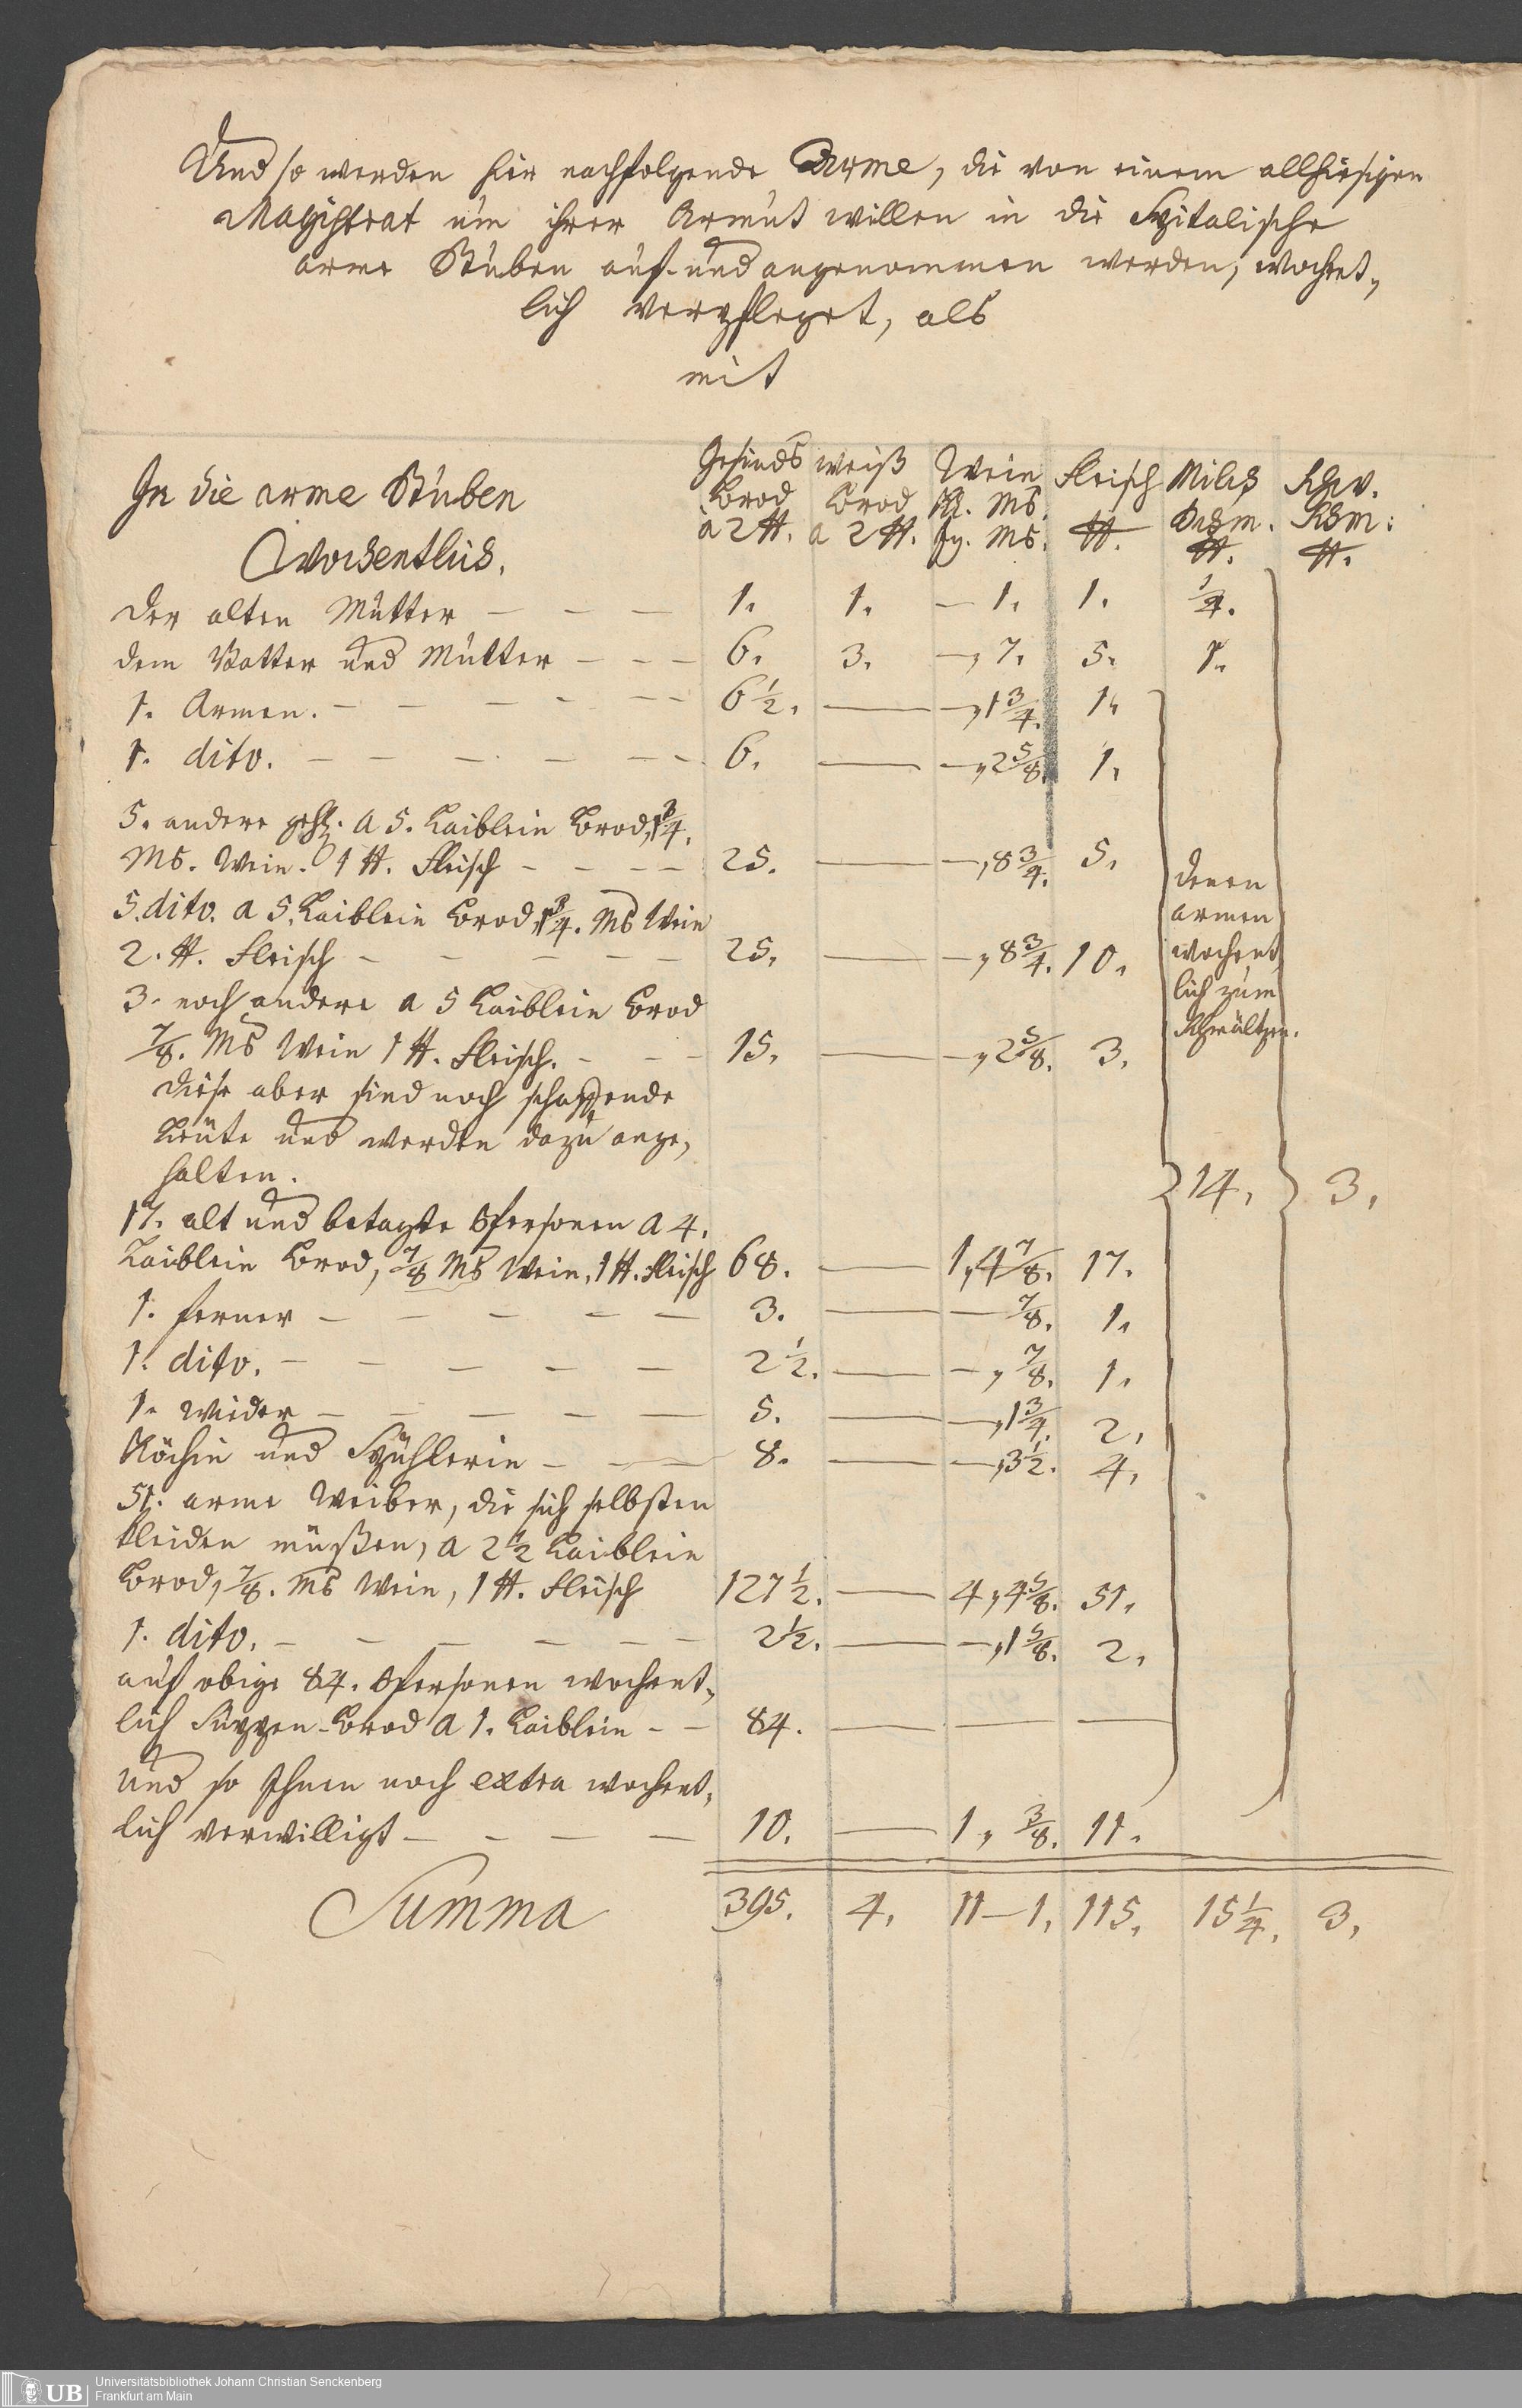 Und so werden hier nachfolgende Arme, die von einem allhiesigen
Magistrat um ihrer Armut willen in die Spitalische
arme Stuben auf- und angenommen werden, wochent„
lich verpfleget, als
mit
In die arme Stuben
Wochentlich.
Gesinds Brod à 2 ℔.
weiß Brod a 2 ℔.
Wein Ms. Ms.
Fleisch ℔.
Milch ℔.
℔.
Der alten Mutter – – – 1. 1. – 1. 1. 1/4.
dem Vatter und Mutter – – – 6. 3. –, 7. 5. 1.
1. Armen. – – – – – 6 1/2. — –, 1 3/4. 1.
1. dito. – – – – – – 6. — –, 2 5/8. 1.
5. andere a 5. Laiblein Brod, 1 3/4.
Ms. Wein. 1 ℔. Fleisch – – – – 25. — –, 8 3/4. 5.
5. dito. a 5. Laiblein Brod, 1 3/4. Ms Wein
2. ℔. Fleisch – – – – – 25. — –, 8 3/4. 10.
3. noch andere a 5 Laiblein Brod
7/8. Ms Wein 1 ℔. Fleisch. – – – 15. — –, 2 5/8. 3.
denen
armen
wochent„
lich zum
Schmältzen.
14. 3.
diese aber sind noch schaffende
Leute und werden dazu ange„
halten.
17. alt und betagte Personen a 4.
Laiblein Brod, 7/8 Ms Wein, 1 ℔. Fleisch 68. — 1, 4 7/8. 17.
1. ferner – – – – – 3. — – 7/8. 1.
1. dito. – – – – – 2 1/2. — –, 7/8. 1.
1. wieder – – – – – 5. — –, 1 3/4. 2.
Köchin und Spühlerin – – – 8. — –, 3 1/2. 4.
51. arme Weiber, die sich selbsten
kleiden müßen, a 2 1/2 Laiblein
Brod, 7/8. Ms Wein, 1 ℔. Fleisch 127 1/2. — 4, 4 5/8. 51.
1. dito. – – – – – – 2 1/2. — –, 1 5/8. 2.
auf obige 84. Personen wochent„
lich Suppen-Brod a 1. Laiblein – – 84. — — —
Und so Ihnen noch extra wochent„
lich verwilligt – – – – 10. — 1, 3/8. 11.
Summa 395. 4. 11 – 1. 115. 15 1/4. 3.
UB
Universitätsbibliothek Johann Christian Senckenberg
Frankfurt am Main